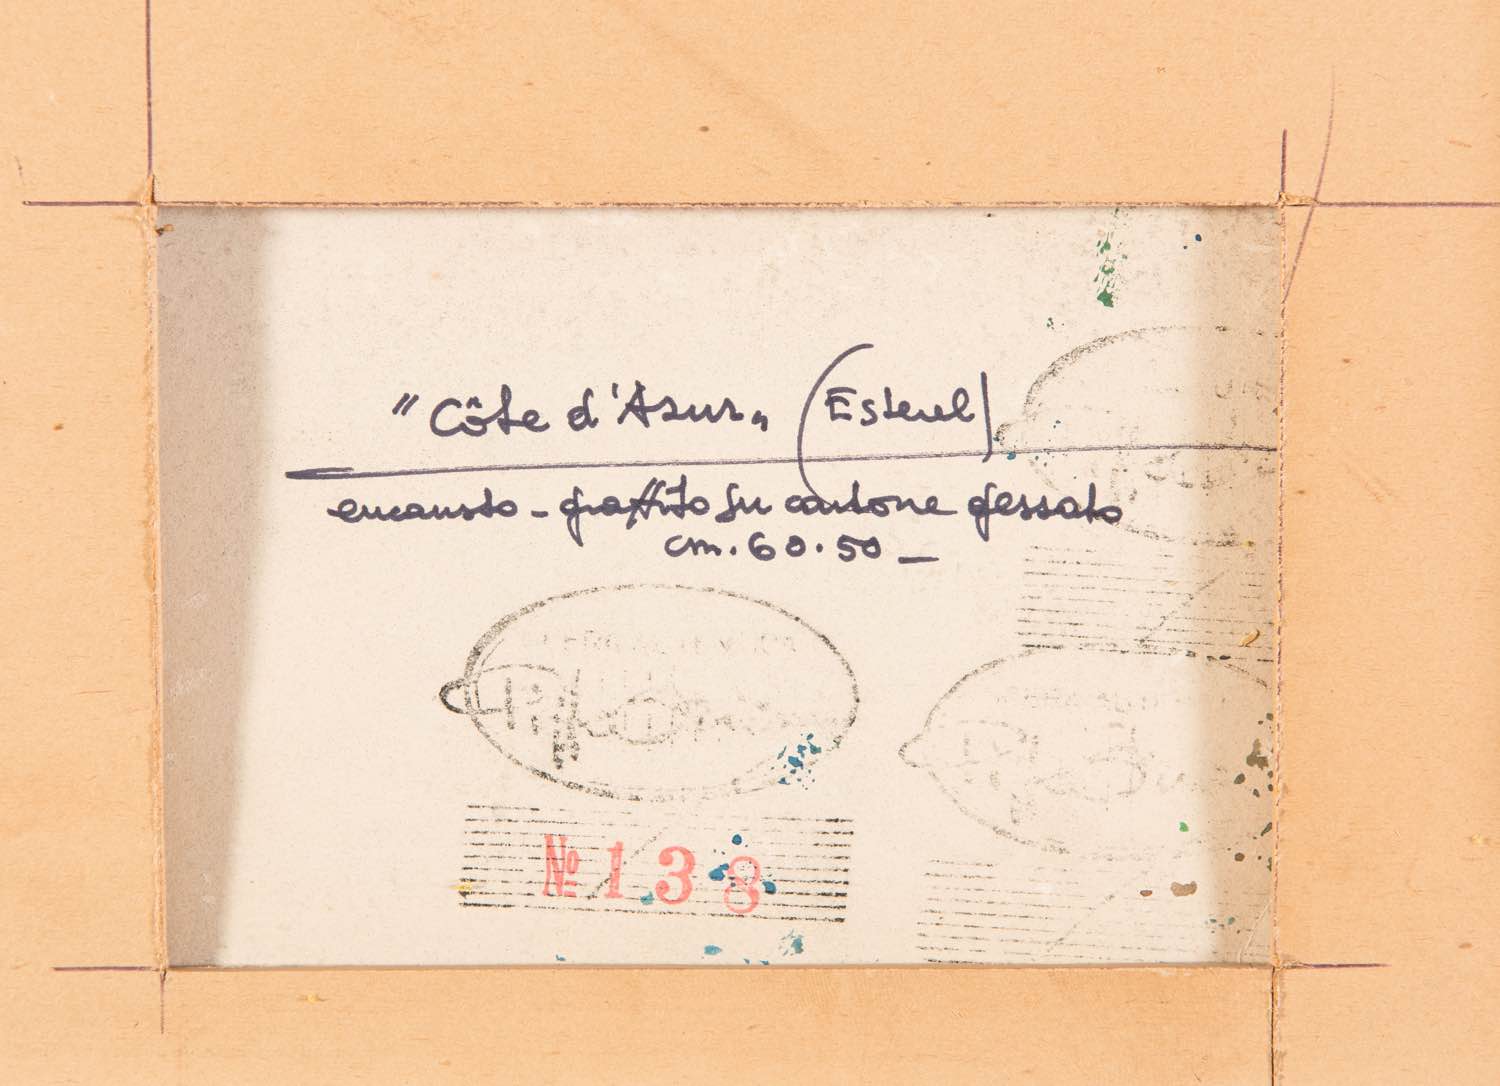 "Côte d'Azur„ (Esterel)
encausto - graffito su cartone gessato
cm. 60.50 -
№ 138